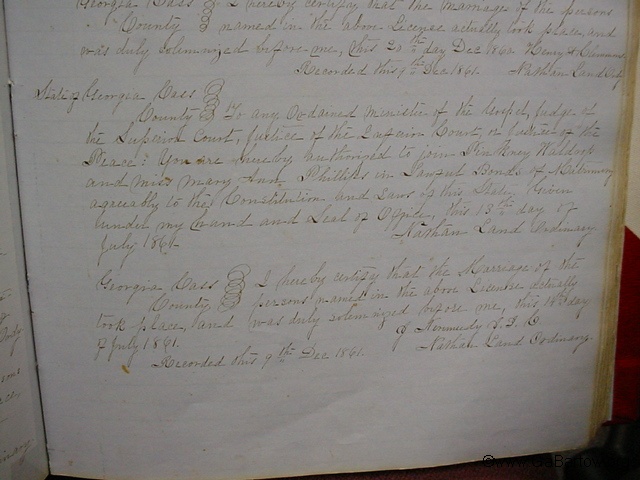 Georgia Cass I hereby certify that the marriage of the persons
County named in the above License actually took place, and
was duly solemnized before me, this 20th day Dec 1860
Recorded this 9th Dec 1861. Nathan Land Ord
State of Georgia Cass
County To any Ordained Minister of the Gospel, Judge of
the Superior Court, Justice of the Inferior Court, or Justice of the
Peace: You are hereby authorized to join Pinkney Waldrop
and Miss Mary Ann Phillips in Lawful Bonds of Matrimony
agreeably to the Constitution and Laws of this State, Given
under my Hand and Seal of Office, this 13th day of
July 1861 Nathan Land Ordinary
Georgia Cass I hereby certify that the Marriage of the
County persons named in the above License actually
took place, and was duly solemnized before me, this day
of July 1861.
Nathan Land Ordinary.
Recorded this 9th Dec 1861.